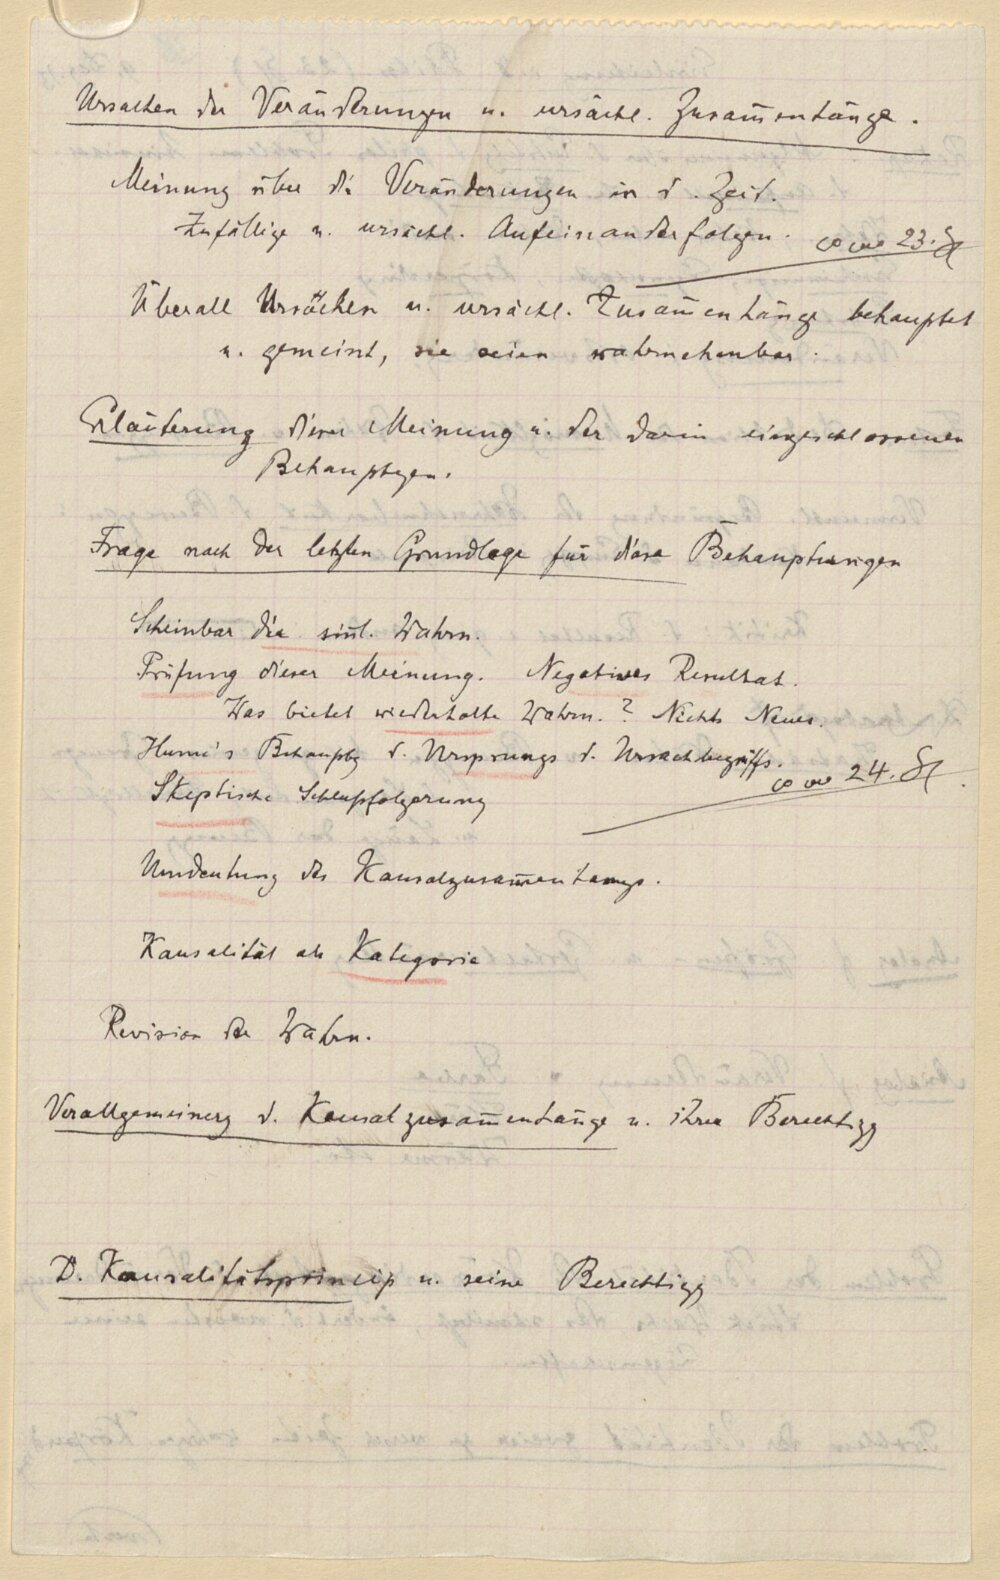 Ursachen der Veränderungen u. ursächl. Zusam̄enhänge.
Meinung über die Veränderungen in d. Zeit.
Zufällige u. ursächl. Aufeinanderfolgen.
23.
Überall Ursachen u. ursächl. Zusam̄enhänge behauptet
u. gemeint, sie seien wahrnehmbar.
Erläuterung dieser Meinung u. der darin eingeschlossenen
Behauptgen.
Frage nach der letzten Grundlage für diese Behauptungen
Scheinbar die sinnl. Wahrn.
Prüfung dieser Meinung. Negatives Resultat.
Was bietet wiederholte Wahrn.? Nichts Neues.
Hume's Behauptg d. Ursprungs d. Ursachbegriffs.
24.
Skeptische Schlußfolgerung
Umdeutung des Kausalzusam̄enhangs.
Kausalität als Kategorie
Revision der Wahrn.
Verallgemeinerg d. Kausalzusam̄enhänge u. ihre Berechtigg
D. Kausalitätsprincip u. seine Berechtigg